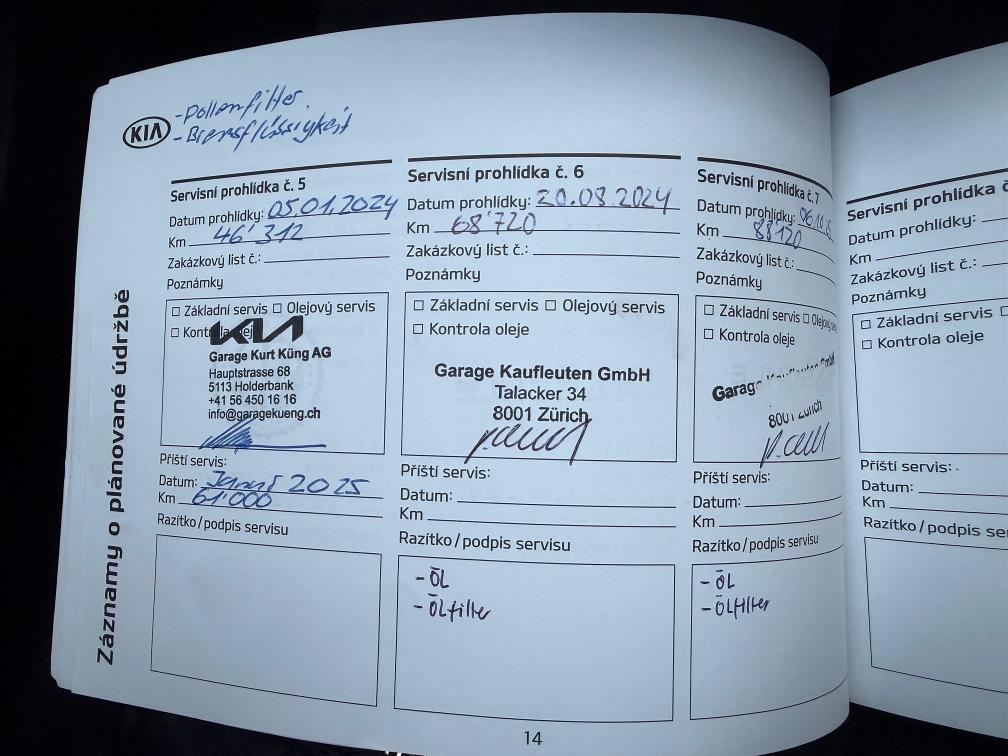 KIA
-Pollenfilter
-Bremsflüssigkeit
Záznamy o plánované údržbě
Servisní prohlídka č. 5
Datum prohlídky: 05.01.2024
Km 46'312
Zakázkový list č.:
Poznámky
Základní servis Olejový servis
Kontrola oleje
KIA
Garage Kurt Küng AG
Hauptstrasse 68
5113 Holderbank
+41 56 450 16 16
info@garagekueng.ch
Příští servis:
Datum: Januar 2025
Km 61'000
Razítko/podpis servisu
Servisní prohlídka č. 6
Datum prohlídky: 20.08.2024
Km 68'720
Zakázkový list č.:
Poznámky
Základní servis Olejový servis
Kontrola oleje
Garage Kaufleuten GmbH
Talacker 34
8001 Zürich
Příští servis:
Datum:
Km
Razítko/podpis servisu
- ÖL
- ÖLfilter
Servisní prohlídka č. 7
Datum prohlídky: 06.10.25
Km 88'120
Zakázkový list č.:
Poznámky
Základní servis Olejový
Kontrola oleje
Garage
8001 Zürich
Příští servis:
Datum:
Km
Razítko/podpis servisu
- ÖL
- ÖLfilter
Servisní prohlídka č
Datum prohlídky:
Km
Zakázkový list č.:
Poznámky
Základní servis
Kontrola oleje
Příští servis:
Datum:
Km
Razítko/podpis servisu
14